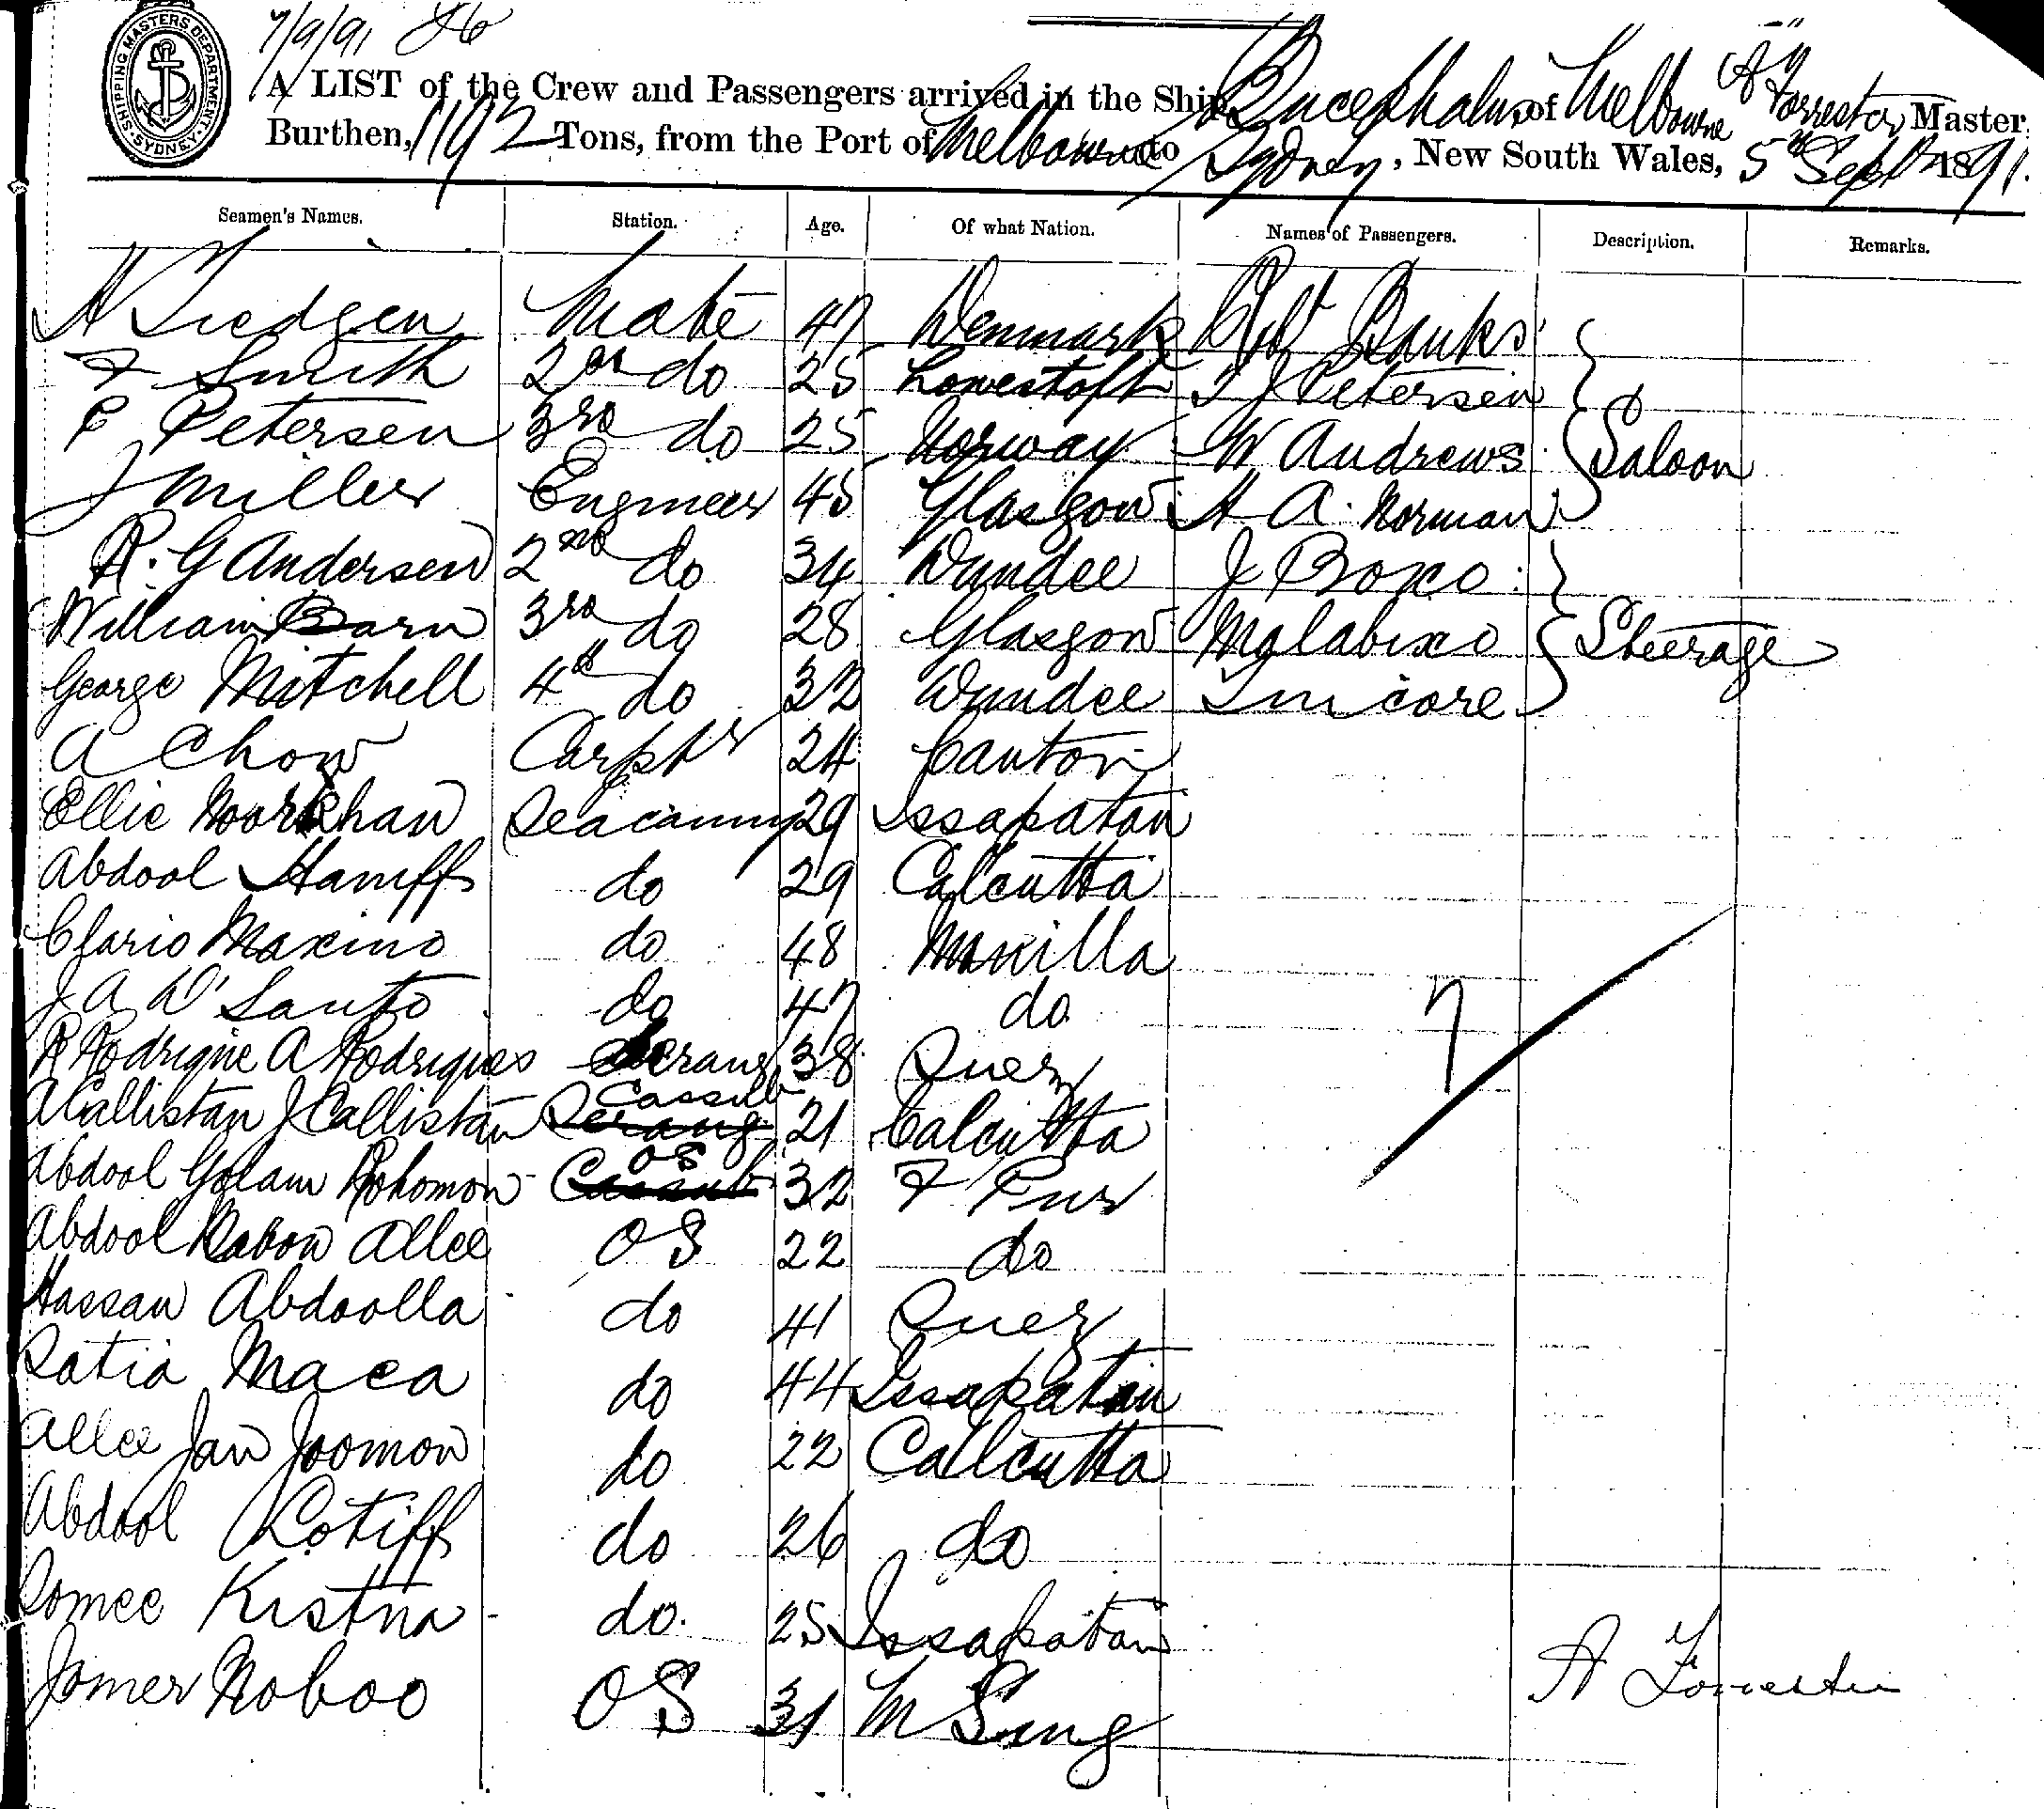 7/9/91
SHIPPING MASTERS DEPARTMENT. SYDNEY.
A LIST of the Crew and Passengers arrived in the Ship Bucephalus of Melbourne A Forrester, Master,
Burthen, 1192 Tons, from the Port of Melbourne to Sydney, New South Wales, 5th Sept 1891.
Seamen's Names. Station. Age. Of what Nation. Names of Passengers. Description. Remarks.
A Tiedgen Mate 47 Denmark Banks
F Smith 2nd do 25 Lowestoft T J Petersen
P Petersen 3rd do 25 Norway W Andrews Saloon
J Miller Engineer 45 Glasgow H A. Norman
R. G Andersen 2nd do 34 Dundee J Boxo
William Barn 3rd do 28 Glasgow Malabixo Steerage
George Mitchell 4th do 32 Dundee
A Chow Carptr 24 Canton
Ellie Noorkhan Seacunny 29 Issapatan
Abdool Haniff do 29 Calcutta
Clario Maximo do 48 Manilla
J A D'Santo do 47 do
R Rodrigue A Rodrigues Serang 38 Suez
A Callistan J Callistan Serang Cassub 21 Calcutta
Abdool Golam Rohomon Cassub OS 32 F Pur
Abdool Rabon Allee OS 22 do
Hassan Abdoolla do 41 Suez
Ratia Maca do 44 Issapatan
Allee Jan Joomon do 22 Calcutta
Abdool Lotiff do 26 do
Romee Kistna do. 25 Issapatan
Jomer Noboo OS 31 M Sing
7
A Forrester